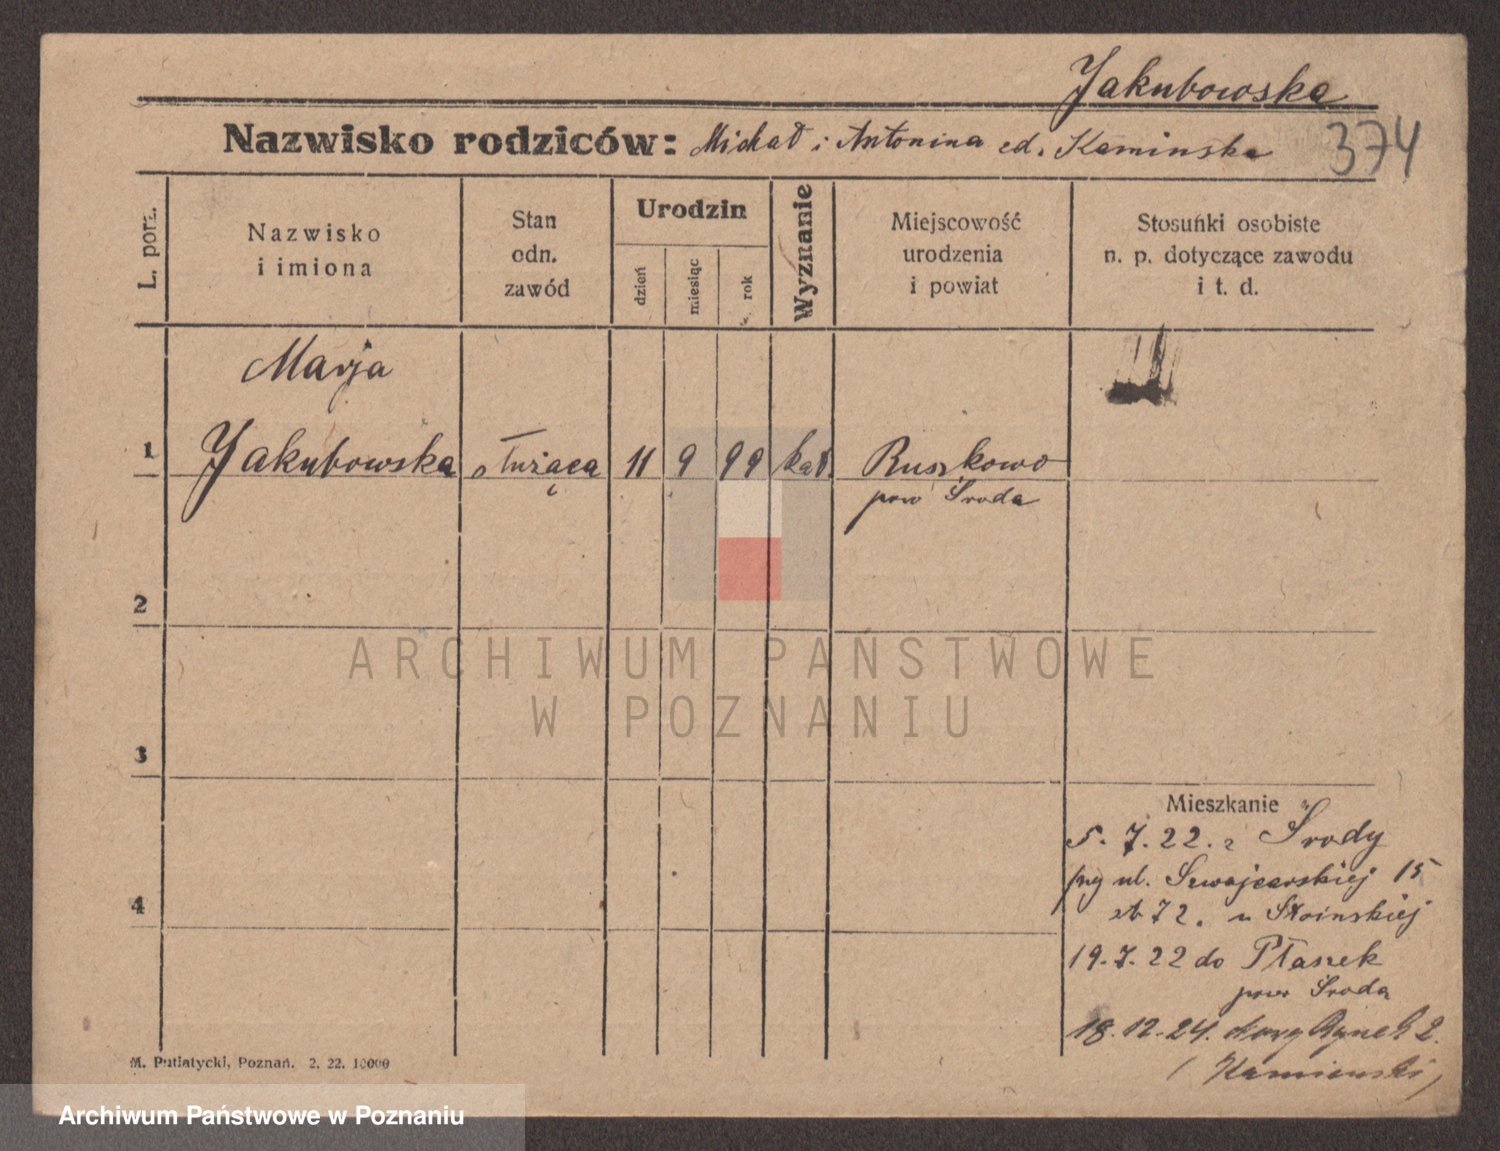 Jakubowska
Nazwisko rodziców: Michał i Antonina cd. Kaminska
374
L. porz.
Nazwisko
i imiona
Stan
odn.
zawód
Urodzin
dzień
miesiąc
rok
Wyznanie
Miejscowość
urodzenia
i powiat
Stosunki osobiste
n. p. dotyczące zawodu
i t. d.
Marja
1 Jakubowska służąca 11 9 99 kat. Ruszkowo
pow Środa
2
3
4
ARCHIWUM PAŃSTWOWE
W POZNANIU
Mieszkanie
5. 7. 22. z Środy
prz ul. Szwajcarskiej 15
72. u Słoinskiej
19. 7. 22 do Płaszek
pow Środa
18. 12. 24. Nowy Rynek 2.
(Kamienski)
M. Putiatycki, Poznań. 2, 22. 10000
Archiwum Państwowe w Poznaniu